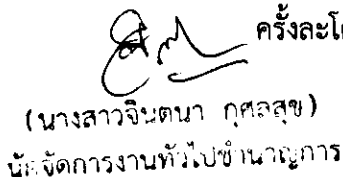 ครั้งละโ
(นางสาวจินตนา กุศลสุข)
นักจัดการงานทั่วไปชำนาญการ